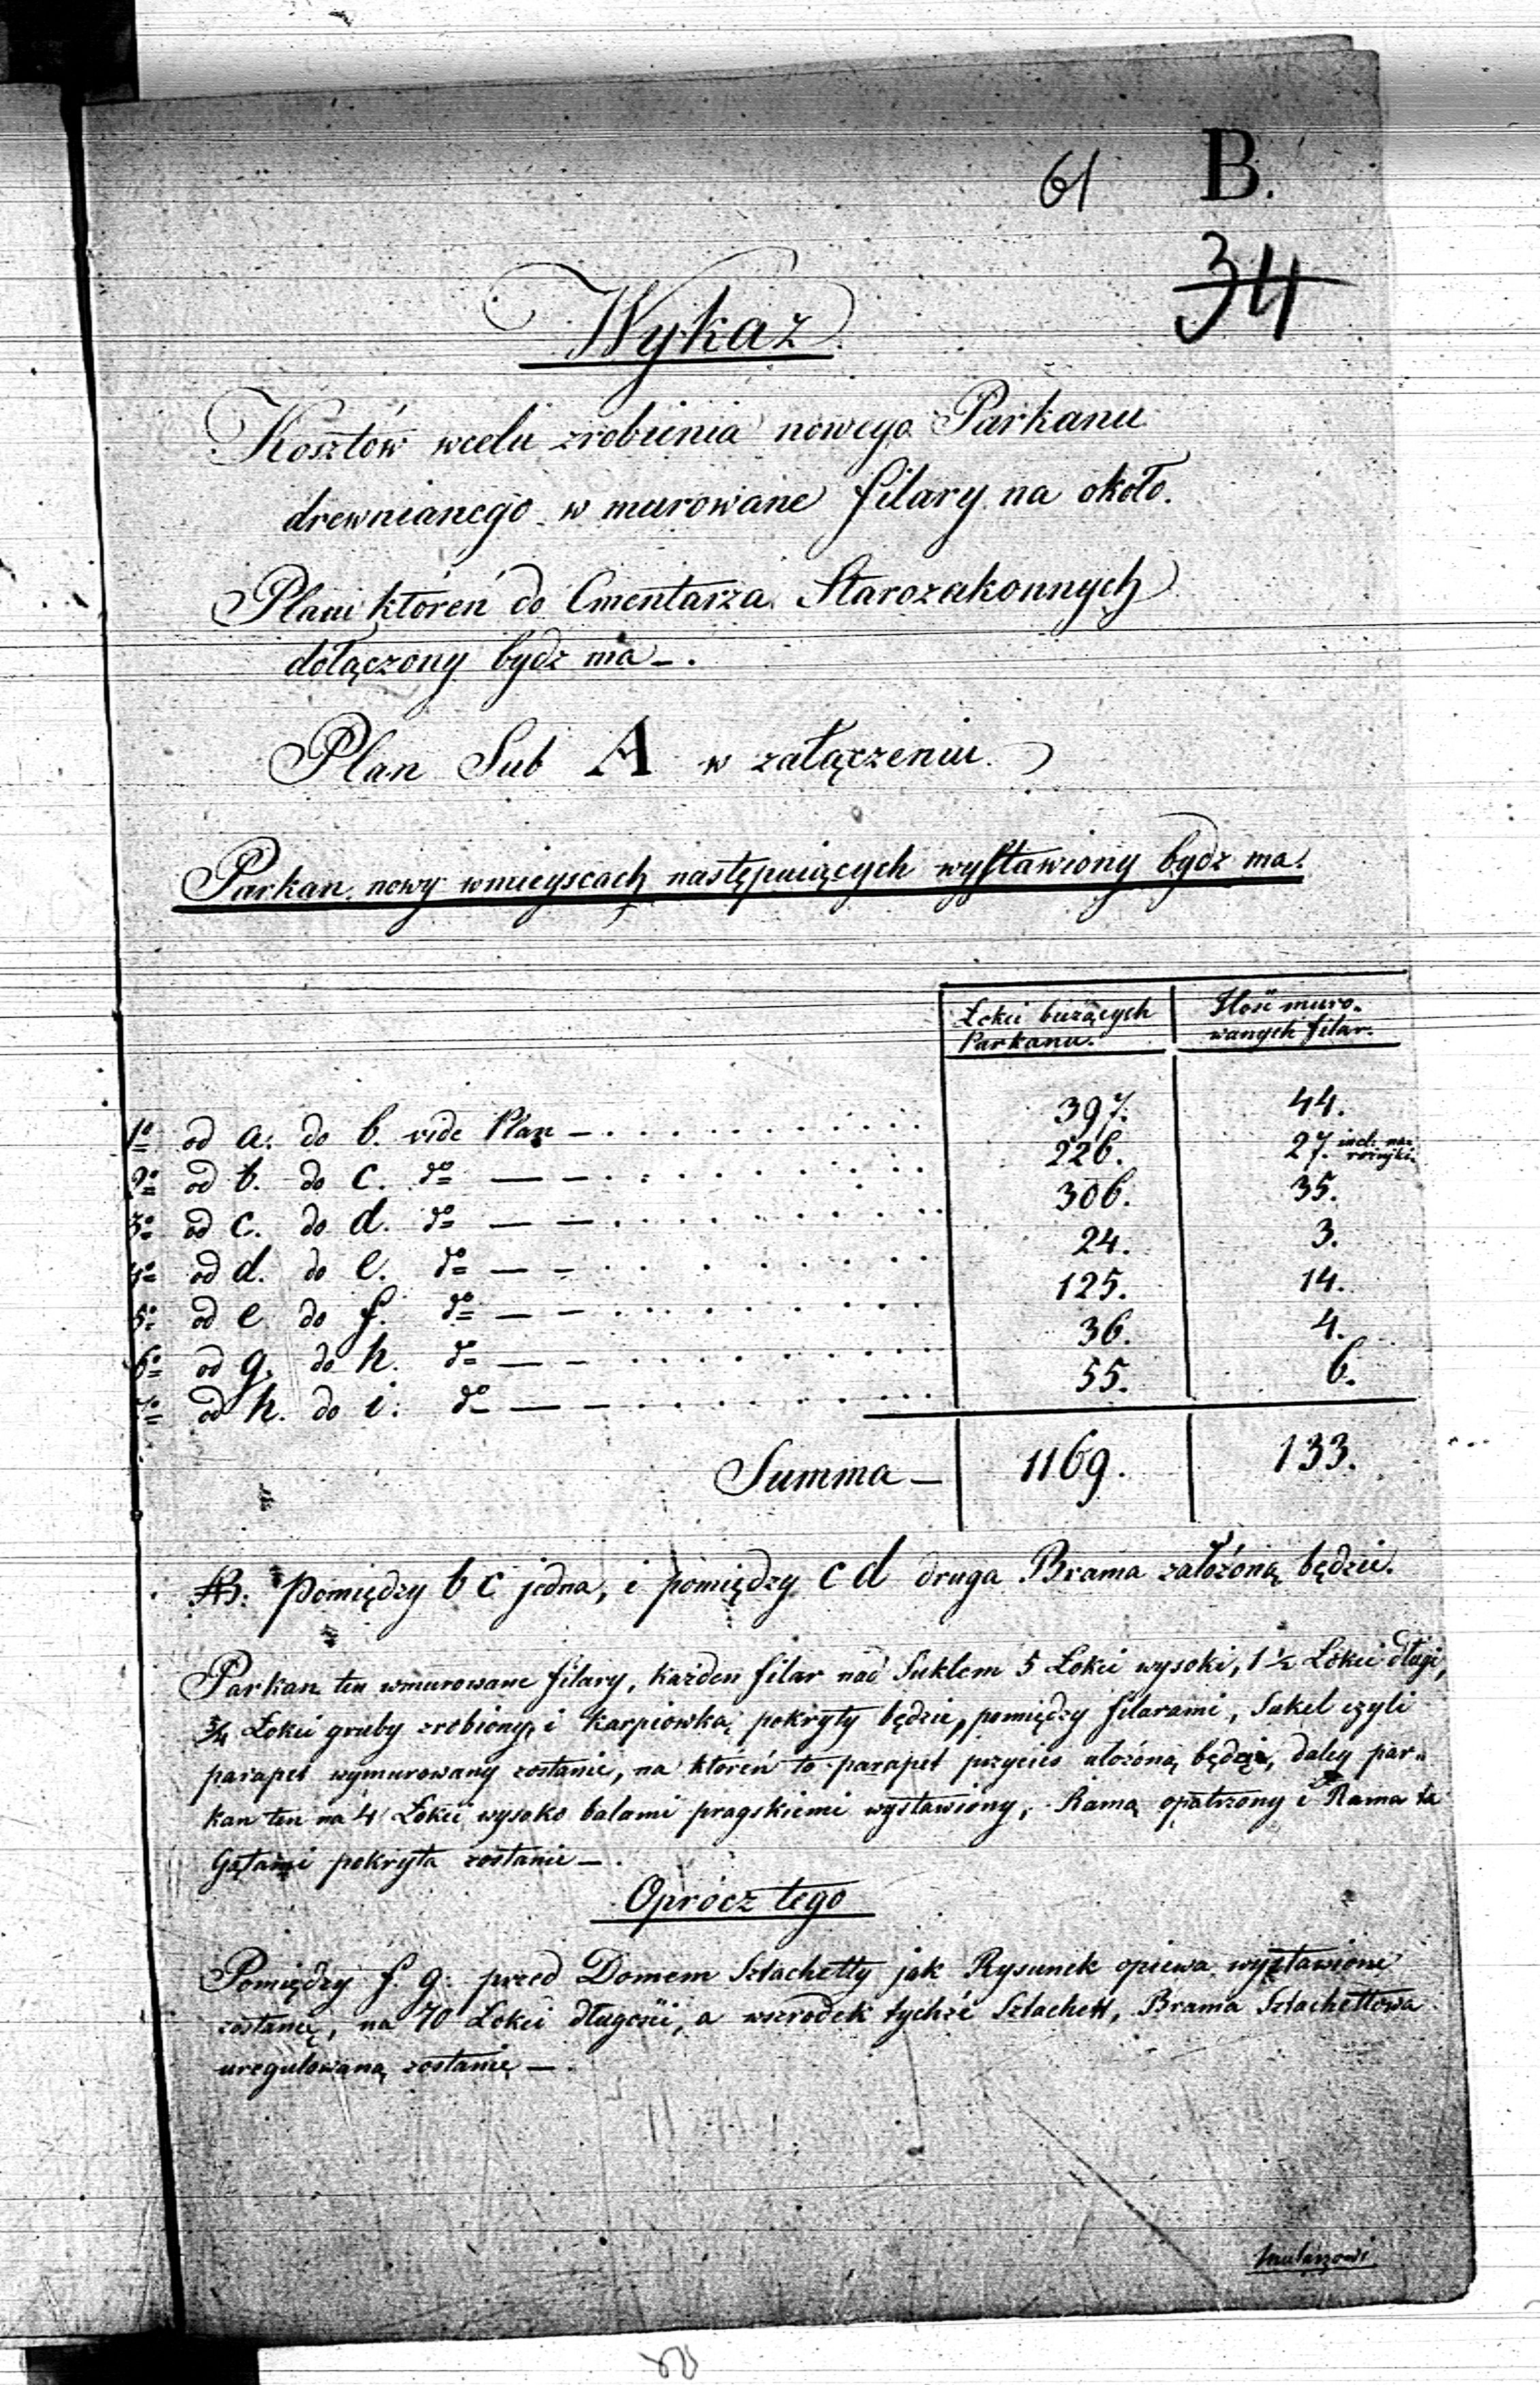 61 B.
34
Wykaz
Kosztów wcelu zrobienia nowego Parkanu
drewnianego w murowane filary na około
Placu któren do Cmentarza Starozakonnych
dołączony bydz ma —.
Plan Sub A w załączeniu.
Parkan nowy wmieyscach następuiących wystawiony bydz ma.
Łokci bieżących Parkanu. Ilość muro-
wanych filar.
1o od a. do b. vide Plan — . . . . . . . . . . . 397. 44.
2o od b. do c. do — — . . . . . . . . . . 226. 27. incl. na-
rożnyki.
3o od c. do d. do — — . . . . . . . . . . 306. 35.
4o od d. do e. do — — . . . . . . . . 24. 3.
5o od e do f. do — — . . . . . . . . . . 125. 14.
6o od g. do h. do — — . . . . . . . . . . 36. 4.
7o od h. do i. do — — . . . . . . . . . 55. 6.
Summa — 1169. 133.
NB: Pomiędzy b c jedna, i pomiędzy c d druga Brama założoną będzie.
Parkan ten wmurowane filary, każden filar nad Suklem 5 Łokci wysoki, 1 ½ Łokci długi,
¾ Łokci gruby zrobiony, i karpiowką pokryty będzie, pomiędzy filarami, Sukel czyli
parapet wymurowany zostanie, na któreń to parapet przycieś ułożoną będzie, daley par-
kan ten na 4 Łokci wysoko balami pragskiemi wystawiony, Ramą opatrzony i Rama ta
pokryta zostanie —.
Oprócz tego
Pomiędzy f. g. przed Domem Sztachetty jak Rysunek opiewa wystawione
zostaną, na 70 Łokci długości, a wśrodek tychże Sztachett, Brama Sztachettowa
uregulowaną zostanie —.